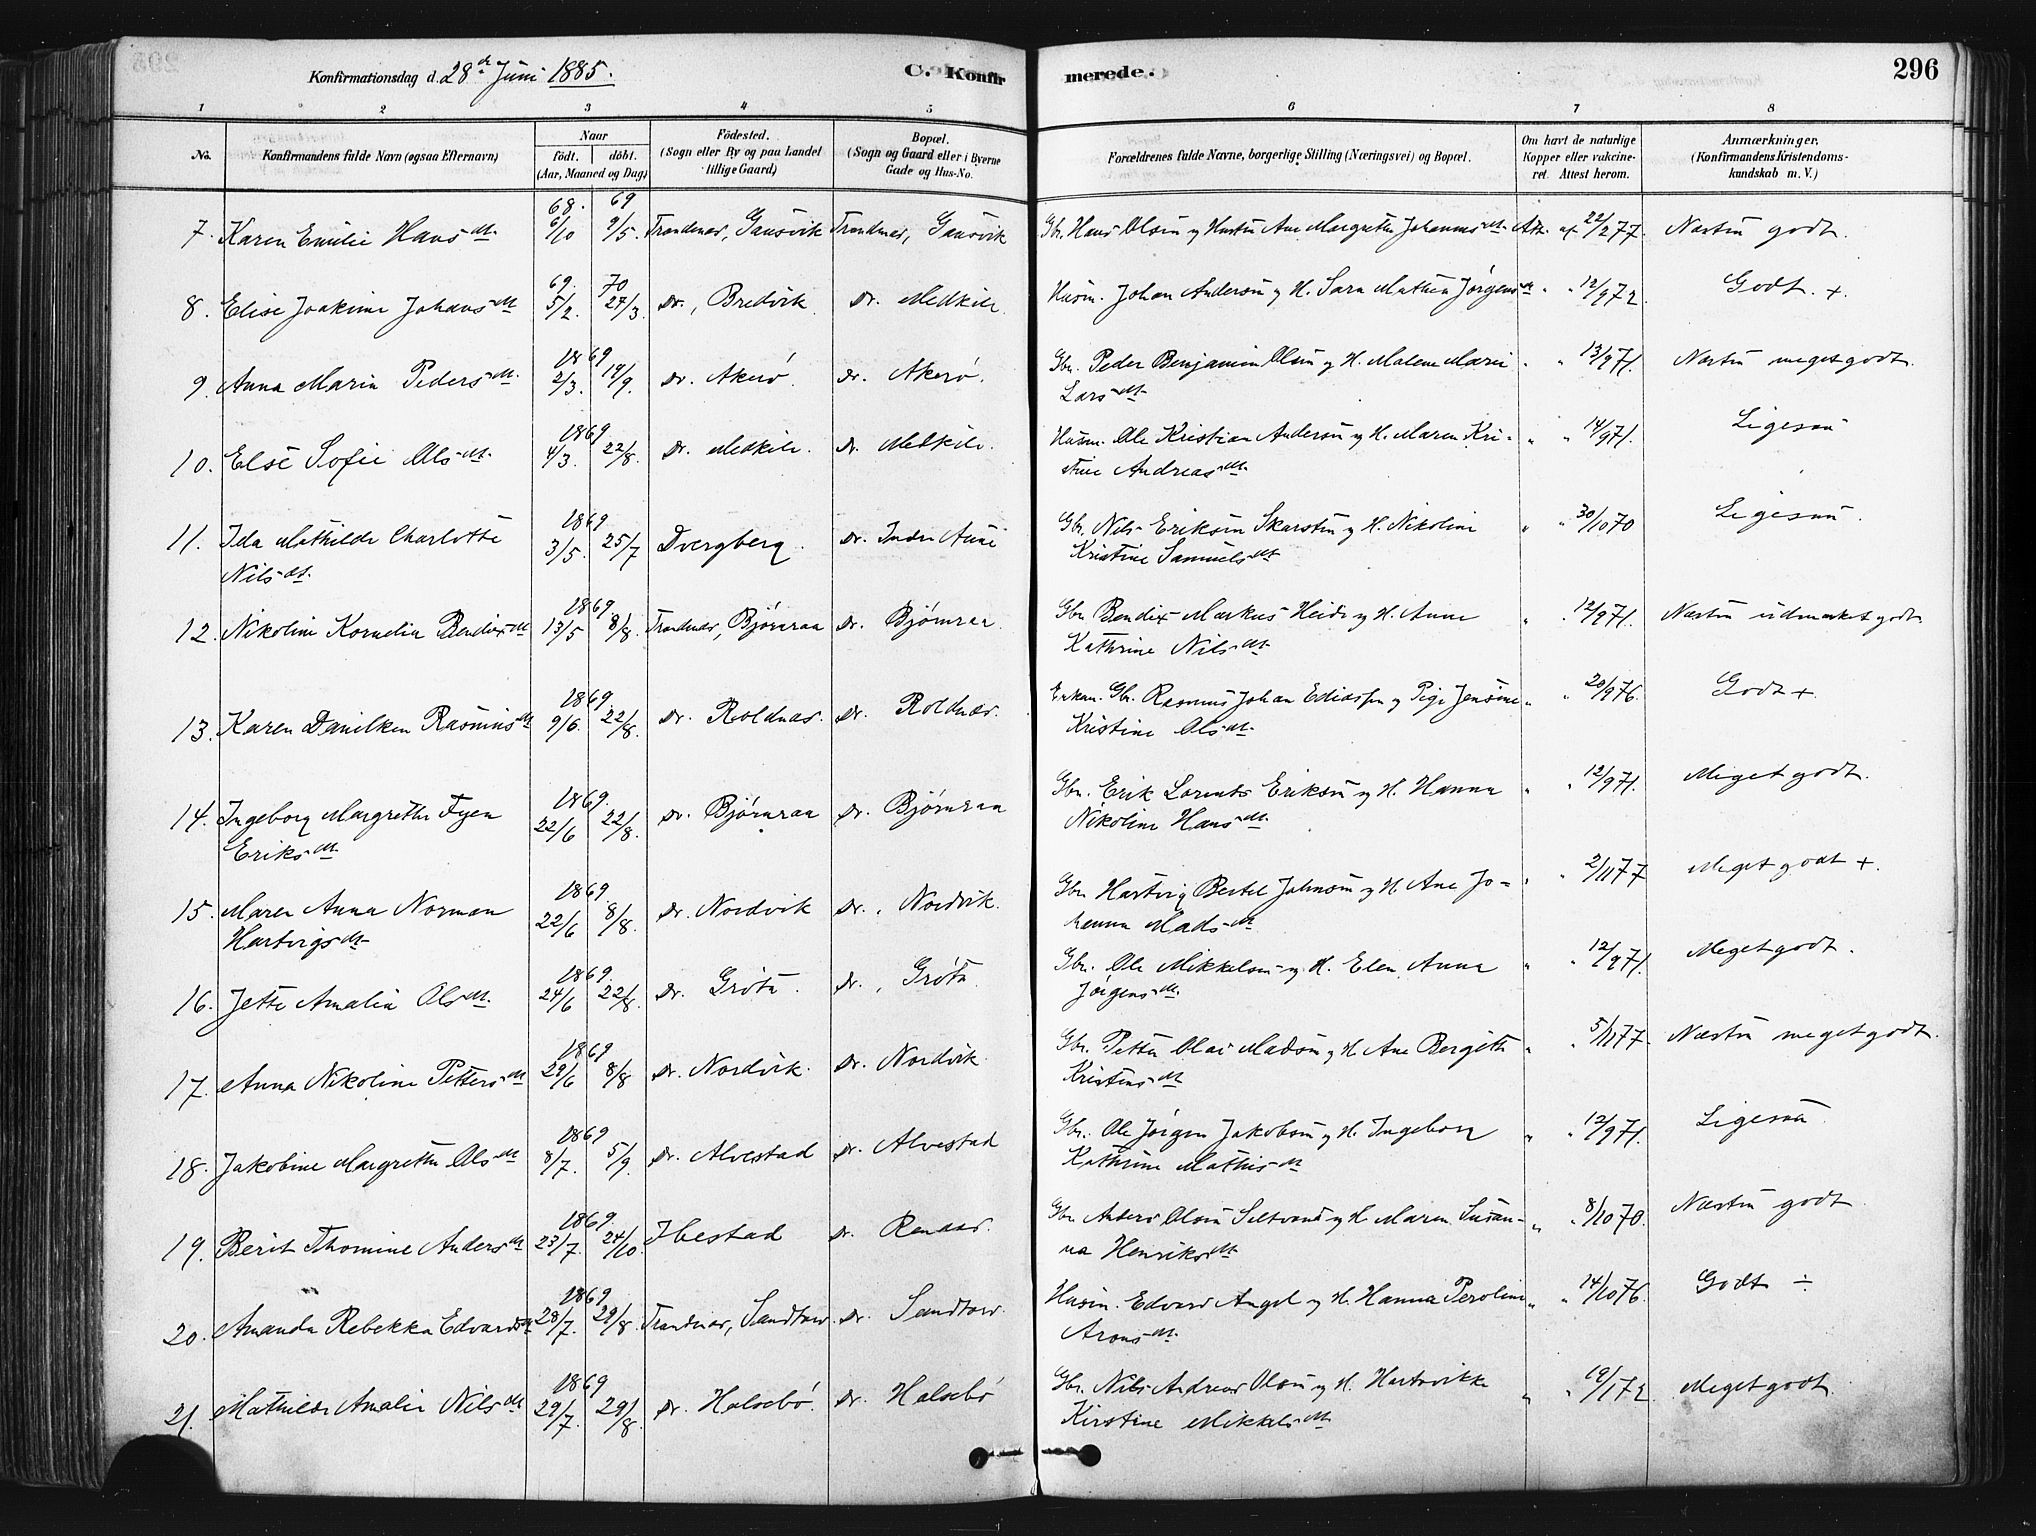 Konfirmationsdag d. 28de Juni 1885.
C. Konfirmerede.
296
1 2 3 4 5 6 7 8
No.
Konfirmandens fulde Navn (ogsaa Efternavn)
Naar
födt. döbt.
(Aar, Maaned og Dag)
Födested.
(Sogn eller By og paa Landet
tillige Gaard)
Bopæl.
(Sogn og Gaard eller i Byerne
Gade og Hus-No.
Forældrenes fulde Navne, borgerlige Stilling (Næringsvei) og Bopæl.
Om havt de naturlige
Kopper eller vakcine-
ret. Attest herom.
Anmærkninger.
(Konfirmandens Kristendoms-
kundskab m. V.)
68. 69
7. Karen Emilie Hansdt. 6/10 9/5. Trondenæs, Gausvik Trondenæs, Gausvik Gbr. Hans Olsen og Hustru Ane Margrethe Johannesdt. Att. af 22/2 77. Næsten godt.
69. 70
8. Elise Joakime Johansdt 5/2. 27/3. do., Bredvik do. Medkile Husm. Johan Andersen og H. Sara Mathea Jørgensdt " " 12/9 72. Godt. +.
1869
9. Anna Maria Pedersdt. 2/3. 19/9. do. Akerø. do. Akerø. Gbr. Peder Benjamin Olsen og H. Malene Marie " " 13/9 71. Næsten meget godt.
Larsdt.
1869
10. Else Sofie Olsdt. 4/3. 22/8. do. Medkile. do. Medkile. Husm. Ole Kristian Andersen og H. Maren Kri- " " 14/9 71. Ligesaa
stine Andreasdt.
1869
11. Ida Mathilde Charlotte 3/5. 25/7 Dvergberg. do. Indre Aune Gbr. Nils Eriksen Skarstein og H. Nikoline " " 30/10 70 Ligesaa.
Nilsdt. Kristine Samuelsdt
1869
12. Nikoline Kornelia Bendixdt 13/5 8/8. Trondenæs, Bjørnraa do. Bjørnraa. Gbr. Bendix Markus Heide og H. Anne " " 12/9 71. Næsten udmærket godt.
Kathrine Nilsdt.
1869
13. Karen Danilken Rasmusdt 9/6. 22/8. do. Roldnæs. do. Roldnæs. Enkem. Gbr. Rasmus Johan Ediassen og Pige Jensine " " 20/9 76. Godt +.
Kristine Olsdt.
1869.
14. Ingeborg Margrethe Fyen 22/6 22/8. do. Bjørnraa do. Bjørnraa Gbr. Erik Lorents Eriksen og H. Hanna " " 12/9 71. Meget godt.
Eriksdt Nikoline Hansdt.
1869.
15. Maren Anna Norman 22/6 8/8. do. Nordvik do., Nordvik. Gbr. Hartvig Bertel Johnsen og H. Ane Jo- " " 2/11 77 Meget godt +.
Hartvigsdt hanna Madsdt
1869.
16. Jette Amalia Olsdt. 24/6 22/8. do. Grøtø. do., Grøtø. Gbr. Ole Mikkelsen og H. Elen Anna " " 12/9 71. Meget godt.
Jørgensdt.
1869
17. Anna Nikoline Pettersdt 29/6 8/8 do. Nordvik. do. Nordvik. Gbr. Petter Olai Madsen og H. Ane Bergitte " " 5/11 77. Næsten meget godt.
Kristensdt
1869
18. Jakobine Margrethe Olsdt 8/7. 5/9. do. Alvestad do. Alvestad Gbr. Ole Jørgen Jakobsen og H. Ingeborg " " 12/9 71. Ligesaa
Kathrine Mathisdt
1869.
19. Berit Thomine Andersdt 23/7. 24/10. Ibestad do. Renaas. Gbr. Anders Olsen Seltvand og H. Maren Susan- " " 8/10 70. Næsten godt
na Henriksdt.
1869
20. Amanda Rebekka Edvardsdt 28/7. 29/8. Trondenæs, Sandtorv. do. Sandtorv. Husm. Edvard Angel og H. Hanna Peroline " " 14/10 76. Godt ÷
Aronsdt.
1869
21. Mathilde Amalie Nilsdt 29/7. 29/8. do. Halsebø. do. Halsebø Gbr. Nils Andreas Olsen og H. Hartvikke " " 19/1 72. Meget godt.
Kirstine Mikkelsdt.